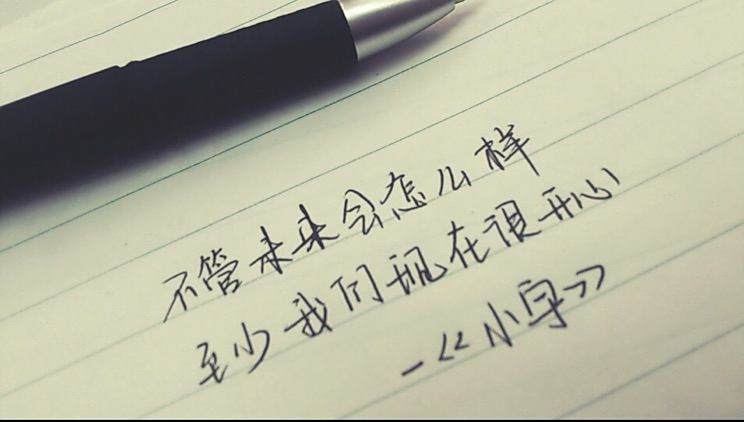 不管未来会怎么样
至少我们现在很开心
-《小字》